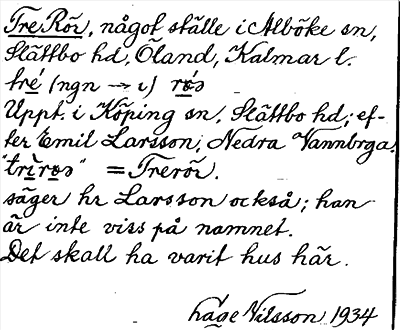 Tre Rör, något ställe i Alböke sn,
Slättbo hd, Öland, Kalmar l.
tré (ngn → ı) rǿs
Uppt. i Köping sn, Slättbo hd; ef-
ter Emil Larsson, Nedra Vannbrga.
"trìrøs" = Trerör.
säger hr Larsson också; han
är inte viss på namnet.
Det skall ha varit hus här.
Nilsson 1934